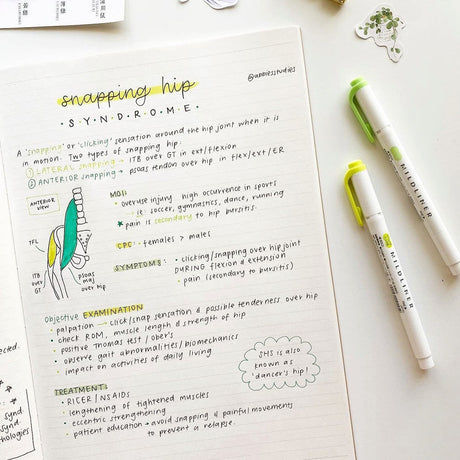 snapping hip
@abbiesstudies
• S • Y • N • D • R • O • M • E •
A 'snapping' or 'clicking' sensation around the hip joint when it is
in motion. Two types of snapping hip.
① LATERAL snapping → ITB over GT in ext/flexion
② ANTERIOR snapping → psoas tendon over hip in flex/ext/ER
ANTERIOR
VIEW
TFL
ITB
over
GT
psoas
maj
over hip
MOI:
• overuse injury high occurrence in sports
→ ie. soccer, gymnastics, dance, running
★ pain is secondary to hip bursitis.
CPC: • females > males
SYMPTOMS: • clicking/snapping over hip joint
DURING flexion & extension
• pain (secondary to bursitis)
Objective EXAMINATION
• palpation → click/snap sensation & possible tenderness over hip
• check ROM, muscle length & strength of hip
• positive Thomas test / Ober's
• observe gait abnormalities/biomechanics
• impact on activities of daily living
SHS is also
known as
'dancer's hip'!
TREATMENT:
• RICER/NSAIDS
• lengthening of tightened muscles
• eccentric strengthening
• patient education → avoid snapping & painful movements
to prevent a relapse.
MILDLINER
MILDLINER